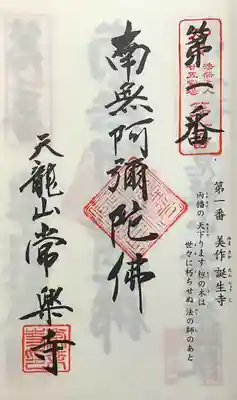 第一番
法然上人
第一番 美作 誕生寺
両幡の 天下ります 椋の木は
世々に朽ちせぬ 法の師のあと
南無阿彌陀佛
天龍山常樂寺